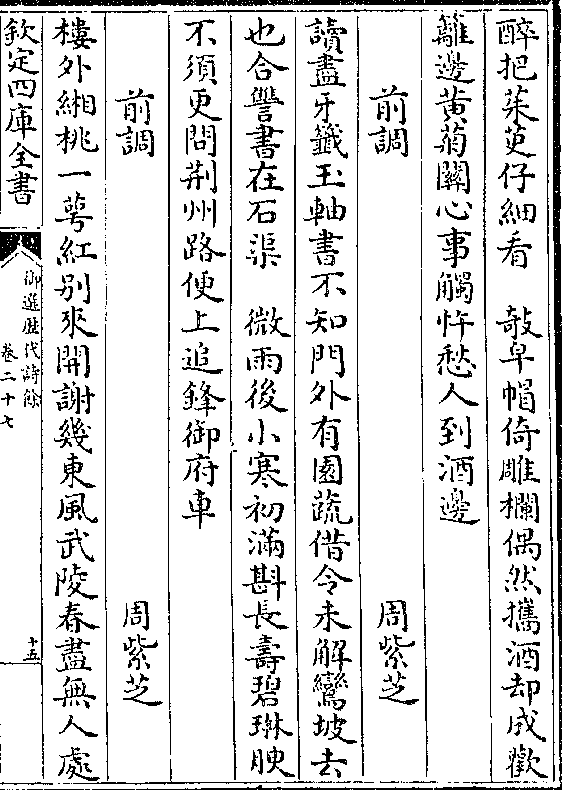 醉把茱萸仔細看　敧皁帽倚雕欄偶然攜酒却成歡
籬邊黄菊關心事觸忤愁人到酒邊
前調　周紫芝
讀盡牙籤玉軸書不知門外有園蔬借令未解鸞坡去
也合讐書在石渠　微雨後小寒初滿斟長壽碧琳腴
不須更問荆州路便上追鋒御府車
前調　周紫芝
樓外緗桃一萼紅别來開謝幾東風武陵春盡無人處
欽定四庫全書
御選歴代詩餘
卷二十七
十五